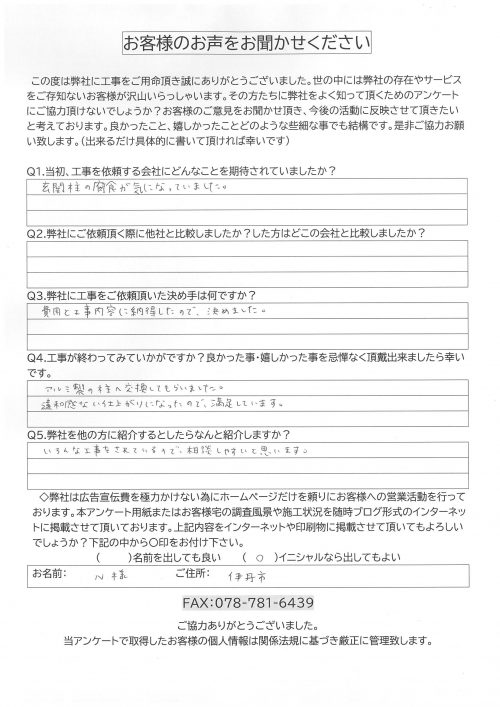 お客様のお声をお聞かせください
この度は弊社に工事をご用命頂き誠にありがとうございました。世の中には弊社の存在やサービス
をご存知ないお客様が沢山いらっしゃいます。その方たちに弊社をよく知って頂くためのアンケート
にご協力頂けないでしょうか?お客様のご意見をお聞かせ頂き、今後の活動に反映させて頂きたい
と考えております。良かったこと、嬉しかったことどのような些細な事でも結構です。是非ご協力お願
い致します。(出来るだけ具体的に書いて頂ければ幸いです)
Q1.当初、工事を依頼する会社にどんなことを期待されていましたか?
玄関柱の腐食が気になっていました。
Q2.弊社にご依頼頂く際に他社と比較しましたか?した方はどこの会社と比較しましたか?
Q3.弊社に工事をご依頼頂いた決め手は何ですか?
費用と工事内容に納得したので、決めました。
Q4.工事が終わってみていかがですか?良かった事・嬉しかった事を忌憚なく頂戴出来ましたら幸い
です。
アルミ製の柱へ交換してもらいました。
違和感ない仕上がりになったので、満足しています。
Q5.弊社を他の方に紹介するとしたらなんと紹介しますか?
いろんな工事をされているので、相談しやすいと思います。
◇弊社は広告宣伝費を極力かけない為にホームページだけを頼りにお客様への営業活動を行って
おります。本アンケート用紙またはお客様宅の調査風景や施工状況を随時ブログ形式のインターネッ
トに掲載させて頂いております。上記内容をインターネットや印刷物に掲載させて頂いてもよろしい
でしょうか?下記の中から〇印をお付け下さい。
( )名前を出しても良い ( ○ )イニシャルなら出してもよい
お名前: N 様 ご住所: 伊丹市
FAX:078-781-6439
ご協力ありがとうございました。
当アンケートで取得したお客様の個人情報は関係法規に基づき厳正に管理致します。